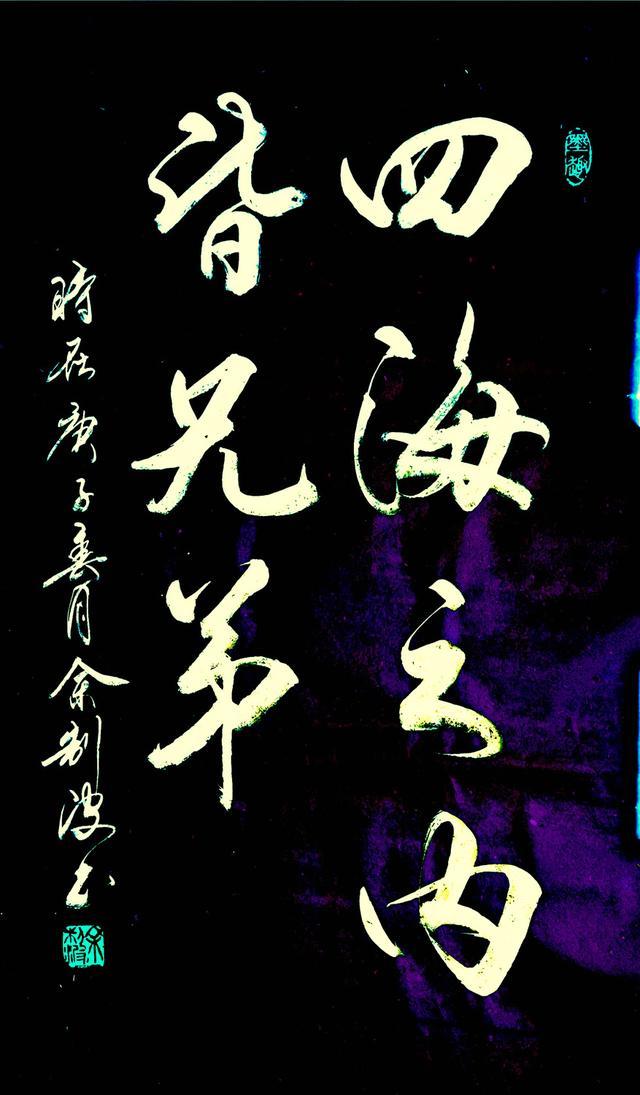 墨趣
四海之内
皆兄弟
時在庚子春月余制波书